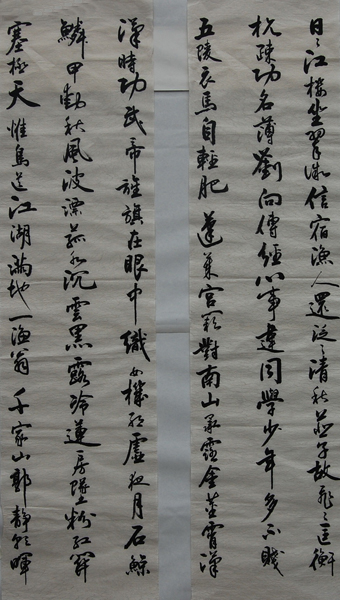 日〻江樓坐翠微信宿漁人還泛清秋燕子故飛〻匡衡
抗疎功名薄劉向傳經心事違同學少年多不賤
五陵衣馬自輕肥 蓬萊宮闕對南山承露金莖霄漢
漢時功武帝旌旗在眼中織女機絲虛夜月石鯨
鱗甲動秋風波漂菰米沉雲黑露冷蓮房墜粉紅關
塞極天惟鳥道江湖滿地一漁翁 千家山郭靜朝暉